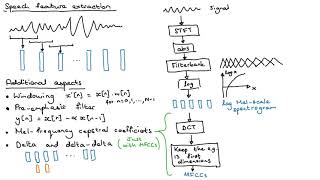 Speech feature extraction
Additional aspects
• Windowing x'[n] = x[n]·w[n]
for n=0,1,...,N-1
• Pre-emphasis filter
y[n] = x[n] - αx[n-1]
• Mel-frequency cepstral coefficients
• Delta and delta-delta
Just with MFCCs
Signal
STFT
abs
Filterbank
log
log x
x
log Mel-scale
spectrogram
DCT
Keep the e.g.
13 first
dimensions
MFCCs